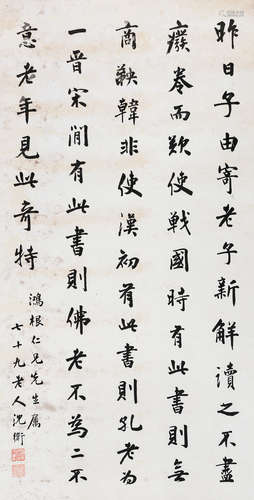 昨日子由寄老子新解讀之不盡
癈卷而歎使戰國時有此書則無
商鞅韓非使漢初有此書則孔老為
一晉宋間有此書則佛老不為二不
意老年見此奇特
鴻根仁兄先生屬
七十九老人沈衛